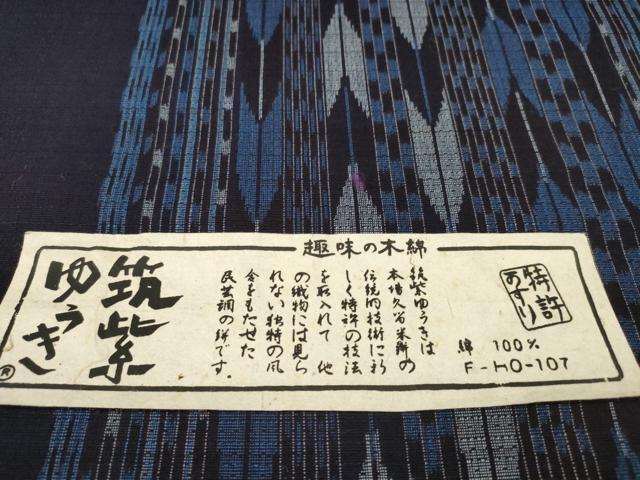 趣味の木綿
特許
あすり
筑紫ゆうきは
本場久留米絣の
伝統的技術に新
しく特許の技法
を取入れて 他
の織物には見ら
れない独特の風
合をもたせた
民芸調の絣です。
綿 100%
F-HO-107
筑紫
ゆうき
®